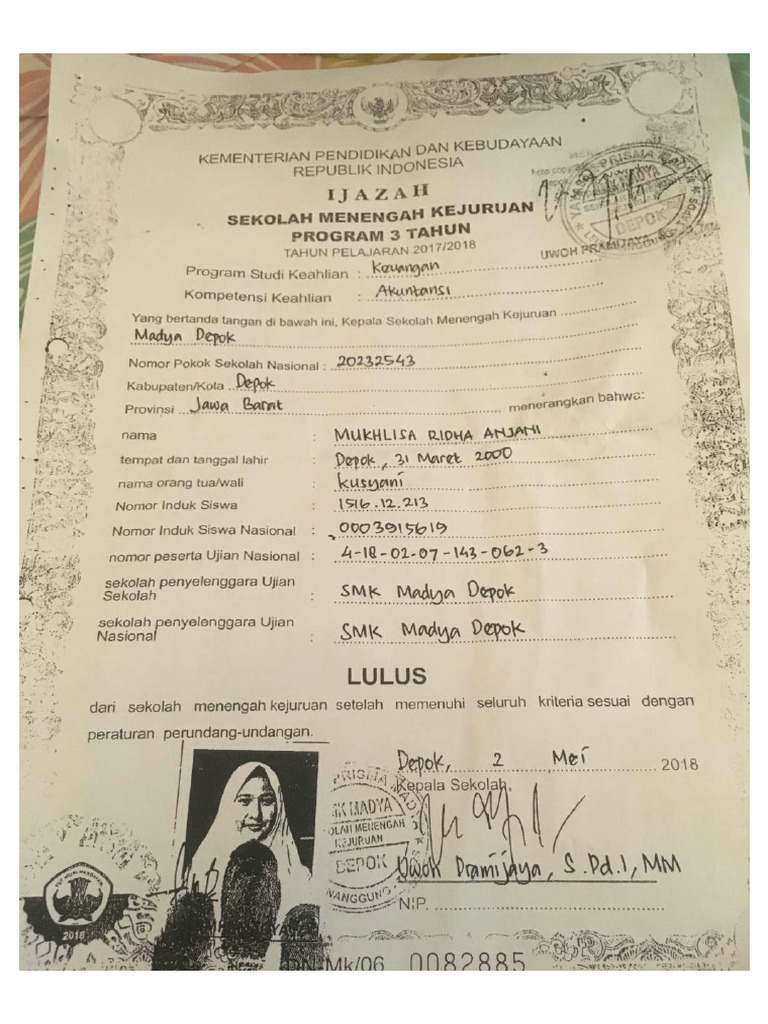 KEMENTERIAN PENDIDIKAN DAN KEBUDAYAAN
REPUBLIK INDONESIA
IJAZAH
SEKOLAH MENENGAH KEJURUAN
PROGRAM 3 TAHUN
TAHUN PELAJARAN 2017/2018
DEPOK
UWOH PRAMIJAYA
Program Studi Keahlian : Keuangan
Kompetensi Keahlian : Akuntansi
Yang bertanda tangan di bawah ini, Kepala Sekolah Menengah Kejuruan
Madya Depok
Nomor Pokok Sekolah Nasional : 20232543
Kabupaten/Kota Depok
Provinsi Jawa Barat menerangkan bahwa:
nama : MUKHLISA RIDHA ANJANI
tempat dan tanggal lahir : Depok, 31 Maret 2000
nama orang tua/wali : Kusyani
Nomor Induk Siswa : 1516.12.213
Nomor Induk Siswa Nasional : 0003915619
nomor peserta Ujian Nasional : 4-18-02-07-143-062-3
sekolah penyelenggara Ujian
Sekolah : SMK Madya Depok
sekolah penyelenggara Ujian
Nasional : SMK Madya Depok
LULUS
dari sekolah menengah kejuruan setelah memenuhi seluruh kriteria sesuai dengan
peraturan perundang-undangan.
Depok, 2 Mei 2018
Kepala Sekolah,
SMK MADYA
SEKOLAH MENENGAH
KEJURUAN
DEPOK
Uwoh Pramijaya, S.Pd.I, MM
NIP.
2018
Mk/06 0082885